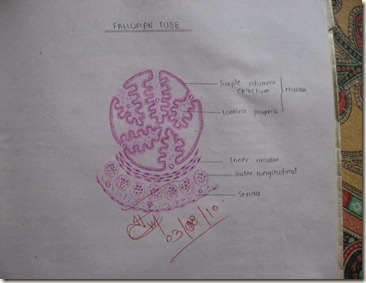 FALLOPIAN TUBE
Simple columnar
epithelium
mucosa
Lamina propria
Inner circular
outer longitudinal
Serosa
03/08/10